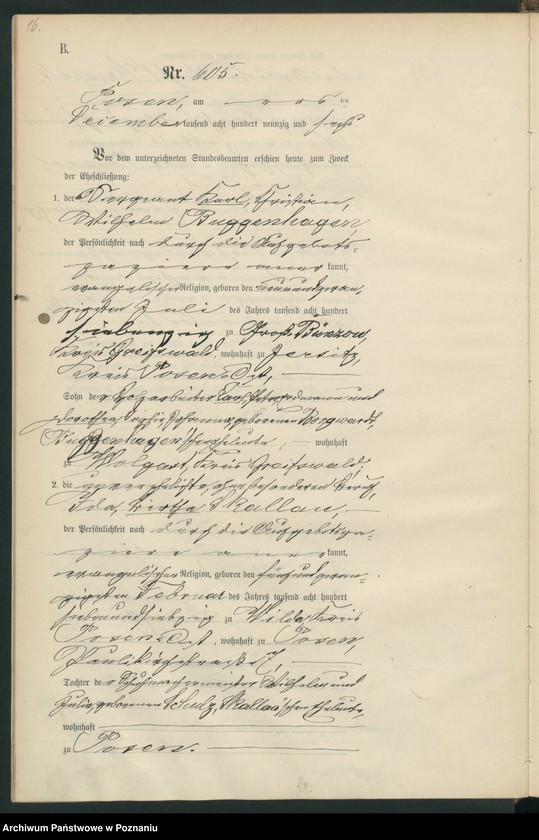 16.
B.
Nr. 605.
Posen, am ten
Dezember tausend acht hundert neunzig und sechs
Vor dem unterzeichneten Standesbeamten erschien heute zum Zweck
der Eheschließung:
1. der Sergeant Karl, Christian,
Wilhelm Buggenhagen,
der Persönlichkeit nach durch die Aufgebots-
papiere anerkannt,
evangelischer Religion, geboren den
zigsten Juli des Jahres tausend acht hundert
siebenzig zu Groß Bünzow,
Kreis Greifswald, wohnhaft zu Jersitz,
Kreis Posen Ost,
Sohn der Holzarbeiter Carl und
Dorothea Sophie Johanna, geborenen Borgwardt,
Buggenhagen'schen Eheleute, wohnhaft
zu Wolgast, Kreis Greifswald;
2. die unverehelichte, ohne besonderen Beruf,
Ida, Skallau,
der Persönlichkeit nach durch die Aufgebotspa-
piere anerkannt,
evangelischer Religion, geboren den fünfundzwan-
zigsten Februar des Jahres tausend acht hundert
siebenundsiebzig zu Wilda, Kreis
Posen Ost, wohnhaft zu Posen,
Paulikirchstraße 7,
Tochter der Schuhmachermeister Wilhelm und
Julie, geborenen Schulz, Skallau'schen Eheleute,
wohnhaft
zu Posen.
Archiwum Państwowe w Poznaniu